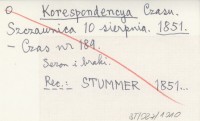 Korespondencya Czasu.
Szczawnica 10 sierpnia. 1851.
- Czas nr 189.
Sezon i braki.
Rec.: STUMMER 1851...